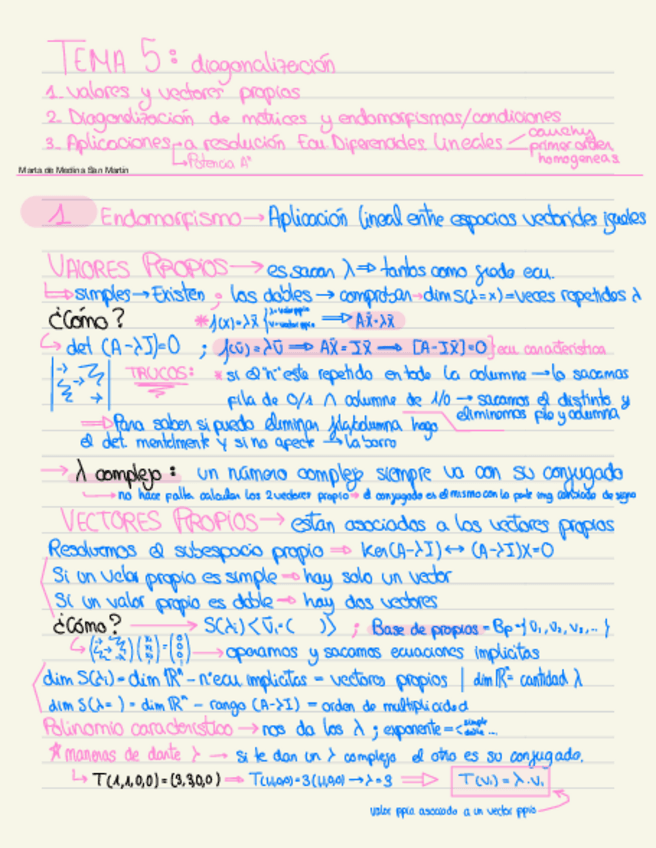 TEMA 5: diagonalización
1. valores y vectores propios
2. Diagonalización de matrices y endomorfismos/condiciones
3. Aplicaciones → a resolución Ecu Diferenciales lineales — cauchy primer orden homogeneas
↳ Potencia Aⁿ
Marta de Medina San Martín
1 Endomorfismo → Aplicación lineal entre espacios vectoriales iguales
VALORES PROPIOS → es sacar λ ⇒ tantos como grado ecu.
↳ simples → Existen ; los dobles → comprobar → dim S(λ=x) = veces repetidos λ
¿Cómo? * f(x)=λx̄ ⇒ Ax̄=λx̄
↳ det (A-λI)=0 ; f(ū)=λū ⇒ Ax̄=Ix̄ ⇒ [A-Ix̄]=0 } ecu característica
TRUCOS: * si el "n" este repetido en toda la columna → lo sacamos
fila de 0/1 ∧ columna de 1/0 → sacamos el distinto y eliminamos fila y columna
⇒ Para saber si puedo eliminar fila/columna hago
el det. mentalmente y si no afecta → la borro
→ λ complejo: un número complejo siempre va con su conjugado
↳ no hace falta calcular los 2 vectores propios → el conjugado es el mismo con la parte img cambiada de signo
VECTORES PROPIOS → estan asociados a los vectores propios
Resolvemos el subespacio propio ⇒ Ker(A-λI) ↔ (A-λI)X=0
Si un valor propio es simple → hay solo un vector
Si un valor propio es doble → hay dos vectores
¿Cómo? → S(λᵢ)<ūᵢ=( )> ; Base de propios = Bp={v₁, v₂, v₃, ...}
→ operamos y sacamos ecuaciones implicitas
dim S(λi) = dim ℝⁿ - nº ecu implicitas = vectores propios | dim ℝⁿ = cantidad λ
dim S(λ= ) = dim ℝⁿ - rango (A-λI) = orden de multiplicidad
Polinomio característico → nos da los λ ; exponente = < simple doble ...
* maneras de darte λ → si te dan un λ complejo el otro es su conjugado.
↳ T(1,1,0,0) = (3,3,0,0) ⇒ T(1,1,0,0) = 3(1,1,0,0) → λ=3 ⇒ T(vᵢ) = λ·vᵢ
valor ppio asociado a un vector ppio